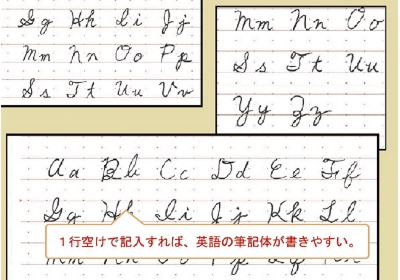 Gg Hh Ii Jj
Mm Nn Oo Pp
Ss Tt Uu Vv
Mm Nn Oo
Ss Tt Uu
Yy Zz
Aa Bb Cc Dd Ee Ff
Gg Hh Ii Jj Kk Ll
1行空けで記入すれば、英語の筆記体が書きやすい。